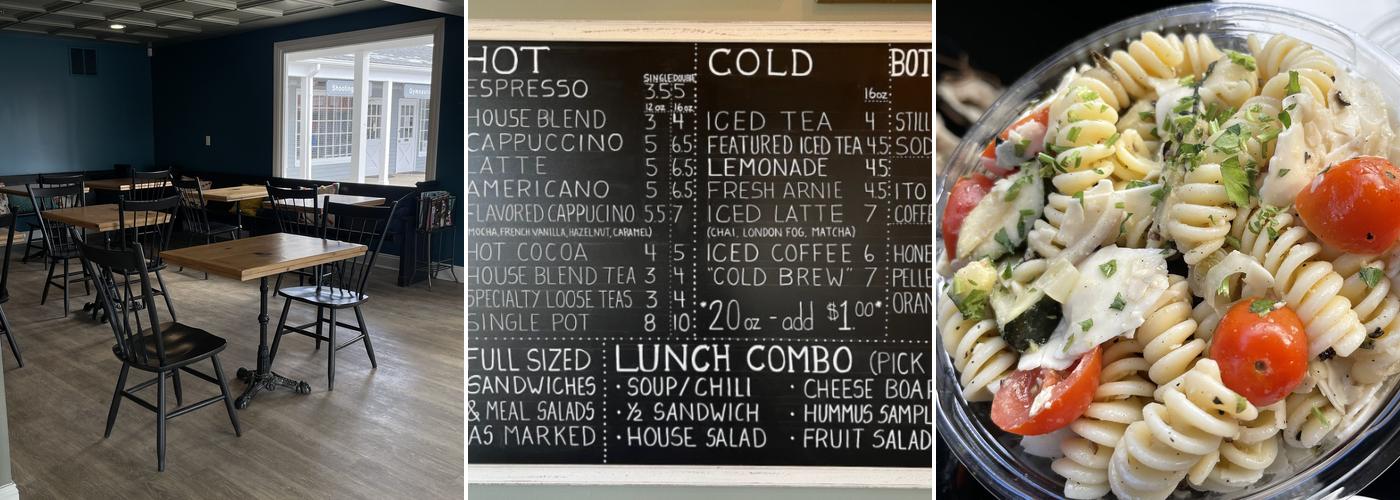 Shooting
Gymnastics
HOT
SINGLE DOUBLE
ESPRESSO 3.5 5
12 oz 16 oz
HOUSE BLEND 3 4
CAPPUCCINO 5 6.5
LATTE 5 6.5
AMERICANO 5 6.5
FLAVORED CAPPUCINO 5.5 7
(MOCHA, FRENCH VANILLA, HAZELNUT, CARAMEL)
HOT COCOA 4 5
HOUSE BLEND TEA 3 4
SPECIALTY LOOSE TEAS 3 4
SINGLE POT 8 10
COLD
16oz
ICED TEA 4
FEATURED ICED TEA 4.5
LEMONADE 4.5
FRESH ARNIE 4.5
ICED LATTE 7
(CHAI, LONDON FOG, MATCHA)
ICED COFFEE 6
"COLD BREW" 7
*20oz - add $1.00*
BOT
STILL
SOD
ITO
COFFE
HONE
PELLE
ORAN
FULL SIZED
SANDWICHES
& MEAL SALADS
AS MARKED
LUNCH COMBO (PICK
· SOUP/CHILI
· ½ SANDWICH
· HOUSE SALAD
· CHEESE BOAR
· HUMMUS SAMPL
· FRUIT SALAD